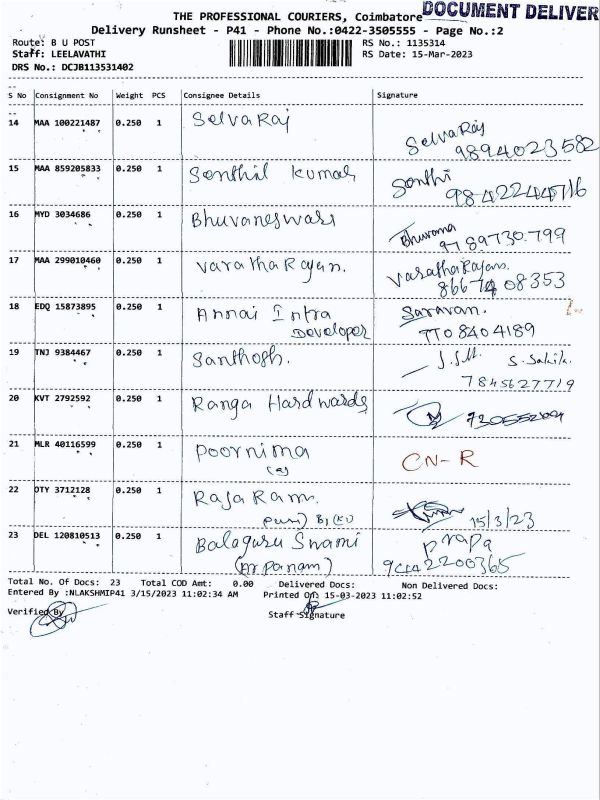 THE PROFESSIONAL COURIERS, Coimbatore
DOCUMENT DELIVER
Delivery Runsheet - P41 - Phone No.:0422-3505555 - Page No.:2
Route: B U POST RS No.: 1135314
Staff: LEELAVATHI RS Date: 15-Mar-2023
DRS No.: DCJB113531402
S No Consignment No Weight PCS Consignee Details Signature
14 MAA 100221487 0.250 1 Selva Raj
SelvaRaj
9894023582
15 MAA 859205833 0.250 1 Senthil Kumar
Senthi
9842244716
16 MYD 3034686 0.250 1 Bhuvaneswari
Bhuvana
9789730799
17 MAA 299010460 0.250 1 Varatha Rajan.
Varatha Rajan.
8667408353
18 EDQ 15873895 0.250 1 Annai Infra
Developer
Saravan.
7708404189
19 TNJ 9384467 0.250 1 Santhosh.
S. Sakila.
7845627719
20 KVT 2792592 0.250 1 Ranga Hardwards
21 MLR 40116599 0.250 1 Poornima
CN-R
22 OTY 3712128 0.250 1 Raja Ram.
15/3/23
23 DEL 120810513 0.250 1 Balaguru Swami
(Arpanam)
Prapa
9442200365
Total No. Of Docs: 23 Total COD Amt: 0.00 Delivered Docs: Non Delivered Docs:
Entered By :NLAKSHMIP41 3/15/2023 11:02:34 AM Printed On: 15-03-2023 11:02:52
Verified By Staff Signature